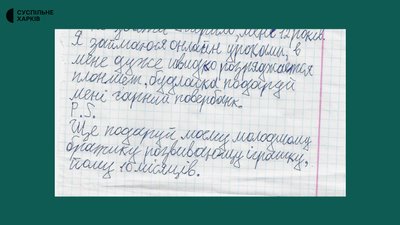 СУСПІЛЬНЕ
ХАРКІВ
мене 12 років.
Я займаюся онлайн уроками, в
мене дуже швидко розряджається
планшет, будьласка подаруй
мені гарний повербанк.
P.S.
Ще подаруй моєму молодшому
братику розвиваючу іграшку,
йому 10 місяців.